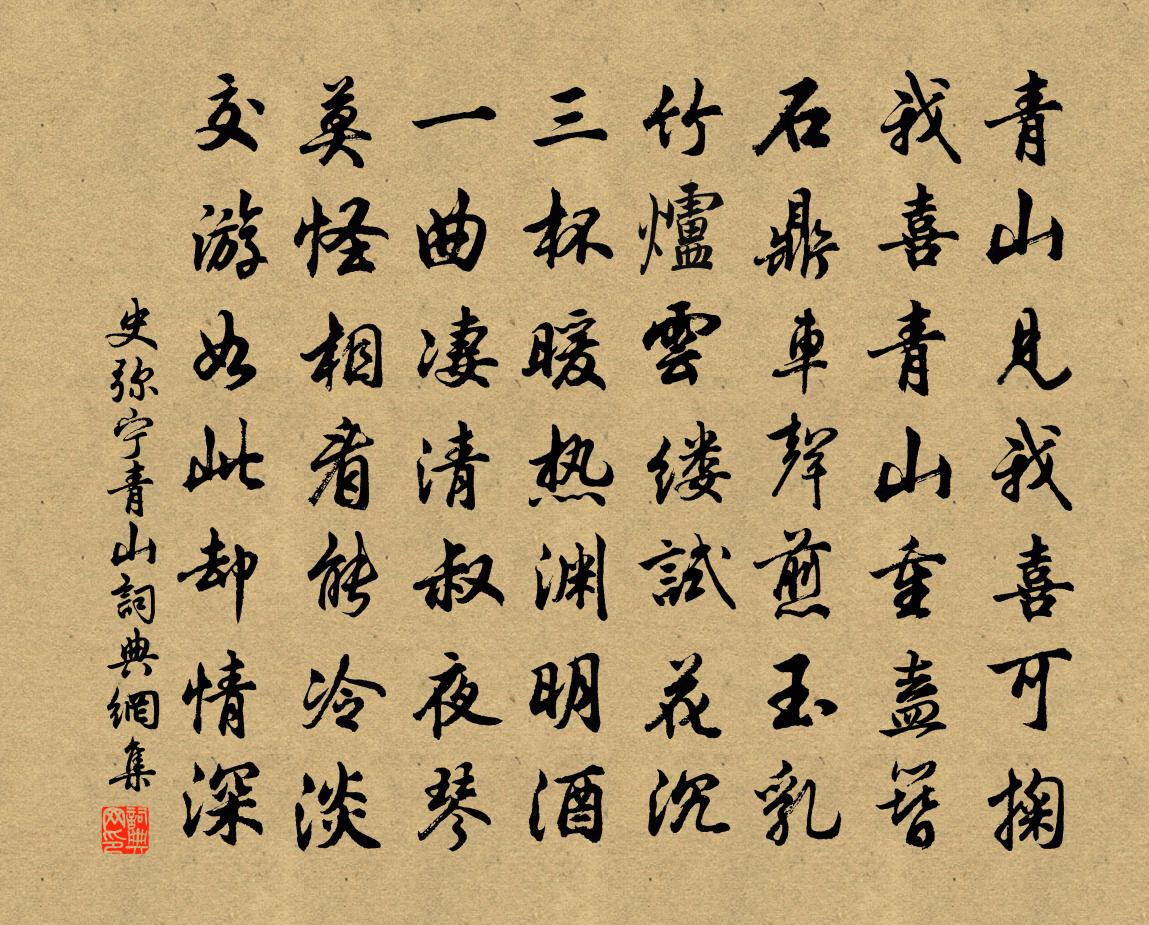 青山見我喜可掬
我喜青山重盍簪
石鼎車聲煎玉乳
竹爐雲缕試花沉
三杯暖热渊明酒
一曲凄清叔夜琴
莫怪相看能冷淡
交游如此却情深
史弥宁青山詞典網集
詞典网印